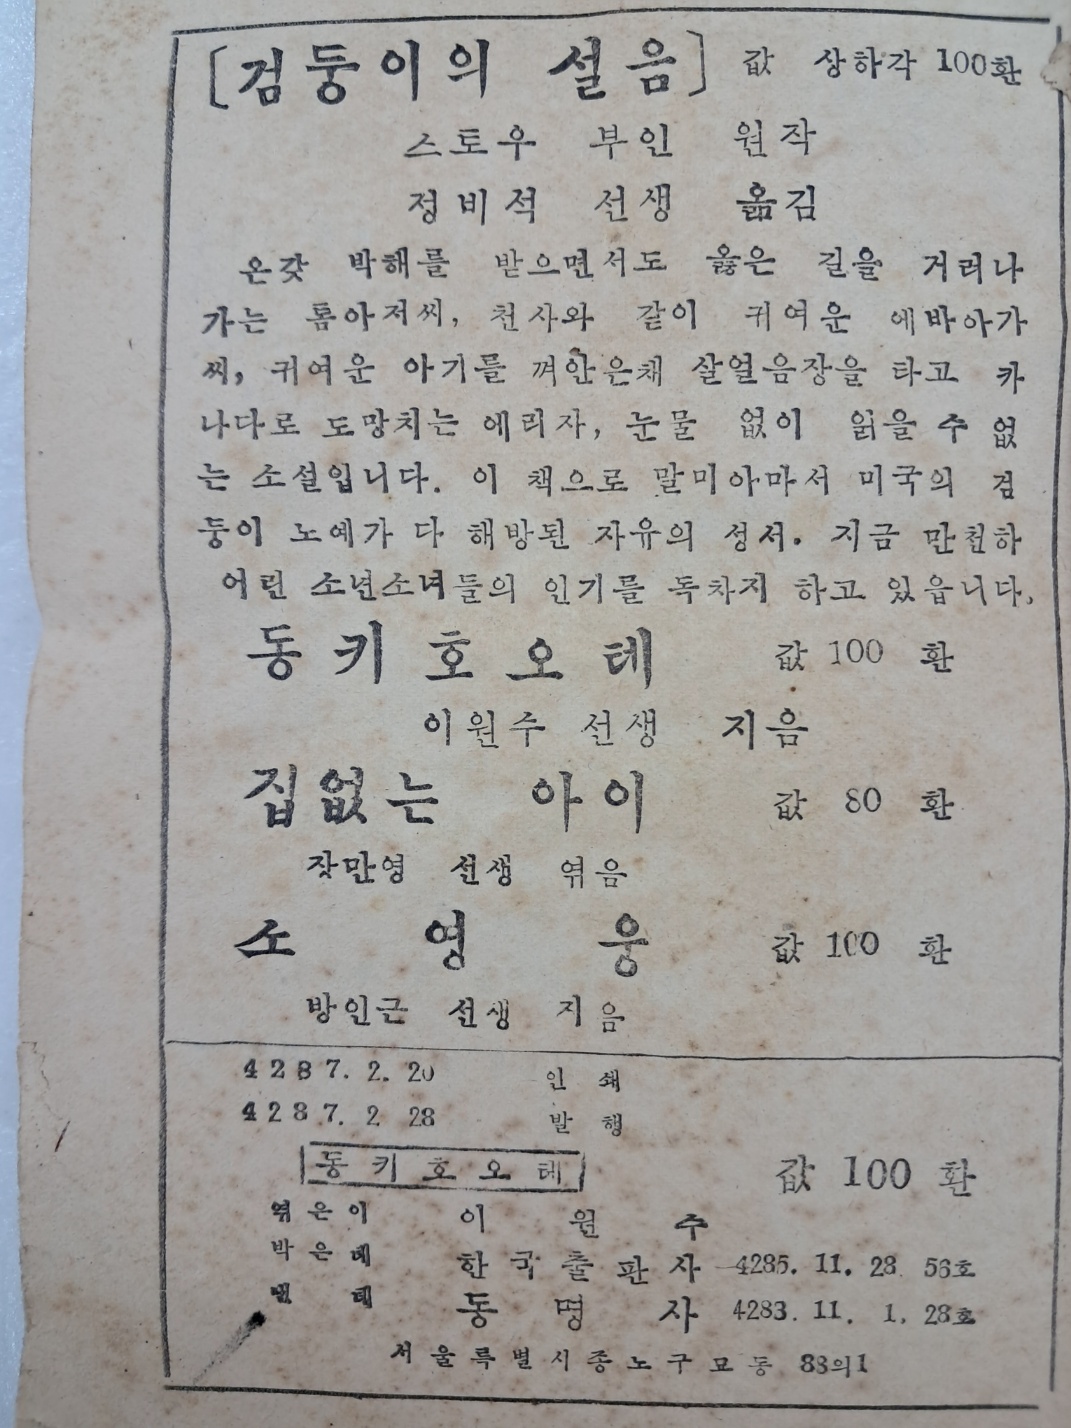 [검둥이의 설음] 값 상하각 100환
스토우 부인 원작
정비석 선생 옮김
온갖 박해를 받으면서도 옳은 길을 거러나
가는 톰아저씨, 천사와 같이 귀여운 에바아가
씨, 귀여운 아기를 껴안은채 살얼음장을 타고 카
나다로 도망치는 에리자, 눈물 없이 읽을 수 없
는 소설입니다. 이 책으로 말미아마서 미국의 검
둥이 노예가 다 해방된 자유의 성서. 지금 만천하
어린 소년소녀들의 인기를 독차지 하고 있읍니다,
동키호오테 값 100 환
이원수 선생 지음
집없는 아이 값 80 환
장만영 선생 엮음
소영웅 값 100 환
방인근 선생 지음
4287. 2. 20 인쇄
4287. 2 28 발행
동키호오테 값 100 환
엮은이 이원수
박은데 한국출판사 4285. 11. 28 56호
낸데 동명사 4283. 11. 1. 28호
서울특별시종노구묘동 88의1